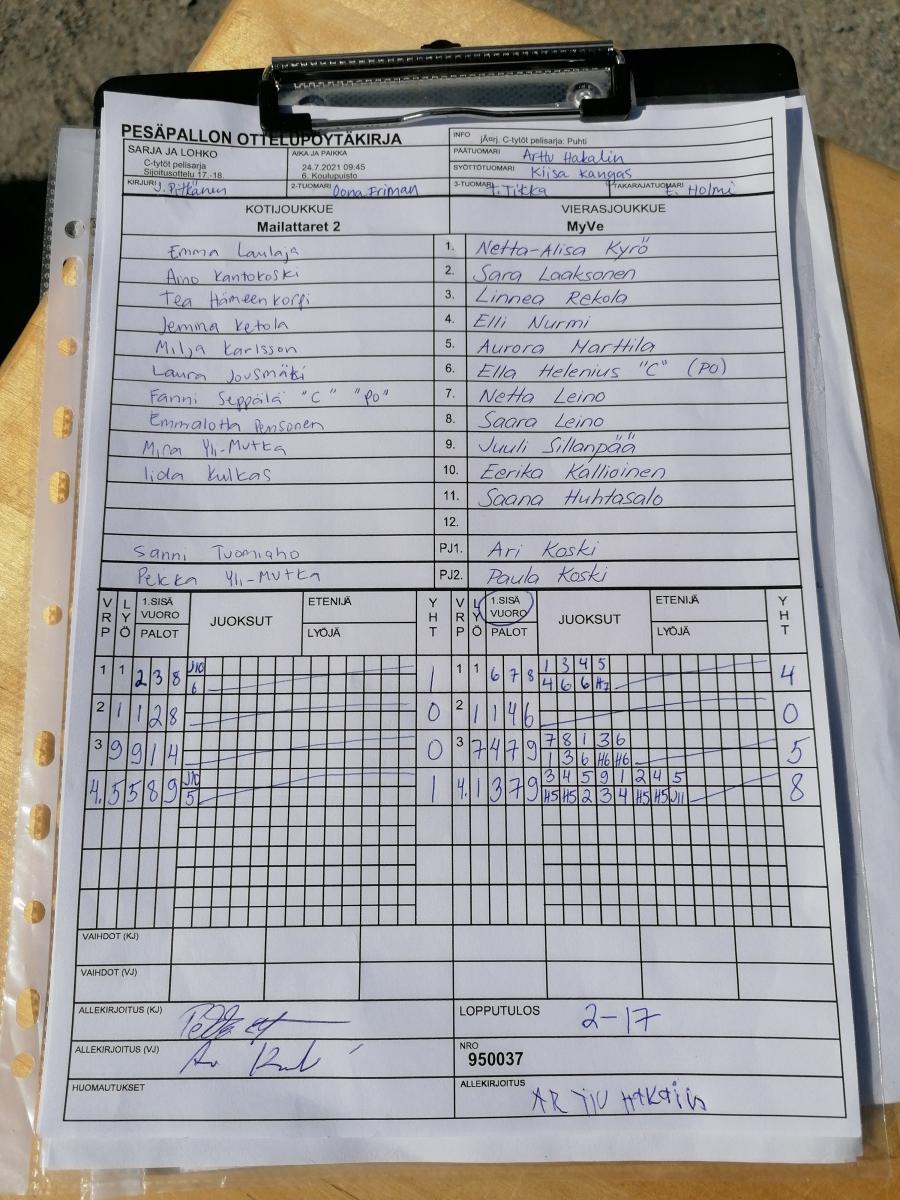 PESÄPALLON OTTELUPÖYTÄKIRJA
INFO jÄurj. C-tytöt pelisarja: Puhti
SARJA JA LOHKO
C-tytöt pelisarja
Sijoitusottelu 17.-18.
AIKA JA PAIKKA
24.7.2021 09:45
6. Koulupuisto
PÄÄTUOMARI Arttu Hakalin
SYÖTTÖTUOMARI Kiisa Kangas
KIRJURI J. Pitkänen
2-TUOMARI Oona Friman
3-TUOMARI T. Tikka
TAKARAJATUOMARI E. Holmi
KOTIJOUKKUE
Mailattaret 2
VIERASJOUKKUE
MyVe
Emma Laulaja 1. Netta-Alisa Kyrö
Aino Kantokoski 2. Sara Laaksonen
Tea Hämeenkorpi 3. Linnea Rekola
Jemma Ketola 4. Elli Nurmi
Milja Karlsson 5. Aurora Marttila
Laura Jousmäki 6. Ella Helenius "C" (PO)
Fanni Seppälä "C" "PO" 7. Netta Leino
Emmalotta Pensonen 8. Saara Leino
Mira Yli-Mutka 9. Juuli Sillanpää
Iida Kulkas 10. Eerika Kallioinen
11. Saana Huhtasalo
12.
Sanni Tuomiaho PJ1. Ari Koski
Pekka Yli-Mutka PJ2. Paula Koski
VRP LYÖ 1.SISÄ VUORO PALOT JUOKSUT ETENIJÄ LYÖJÄ YHT VRP LYÖ 1.SISÄ VUORO PALOT JUOKSUT ETENIJÄ LYÖJÄ YHT
1 1 2 3 8 J10 1 1 1 6 7 8 1 3 4 5 4
6 4 6 6 H7
2 1 1 2 8 0 2 1 1 4 6 0
3 9 9 1 4 0 3 7 4 7 9 7 8 1 3 6 5
1 3 6 H6 H6
4. 5 5 8 9 J10 1 4. 1 3 7 9 3 4 5 9 1 2 4 5 8
5 H5 H5 2 3 4 H5 H5 J11
VAIHDOT (KJ)
VAIHDOT (VJ)
ALLEKIRJOITUS (KJ)
LOPPUTULOS 2-17
ALLEKIRJOITUS (VJ)
NRO
950037
HUOMAUTUKSET
ALLEKIRJOITUS